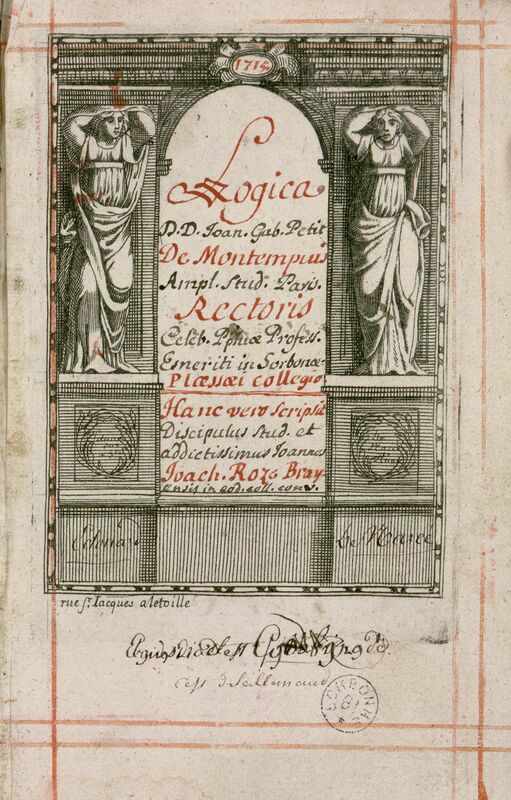 1715
Logica
D.D. Ioan. Gab. Petit
De Montempuis
Ampl. Stud. Paris.
Rectoris
Celeb. Pphiæ Profess.
Emeriti in Sorbonæ-
Plæssæi collegio
Hanc vero scripsit
Discipulus stud. et
addictissimus Ioannes
Ioach. Roze Bray
ensis in eod. coll. conv.
De Marcé
rue St. Iacques a letoille
SORBONNE